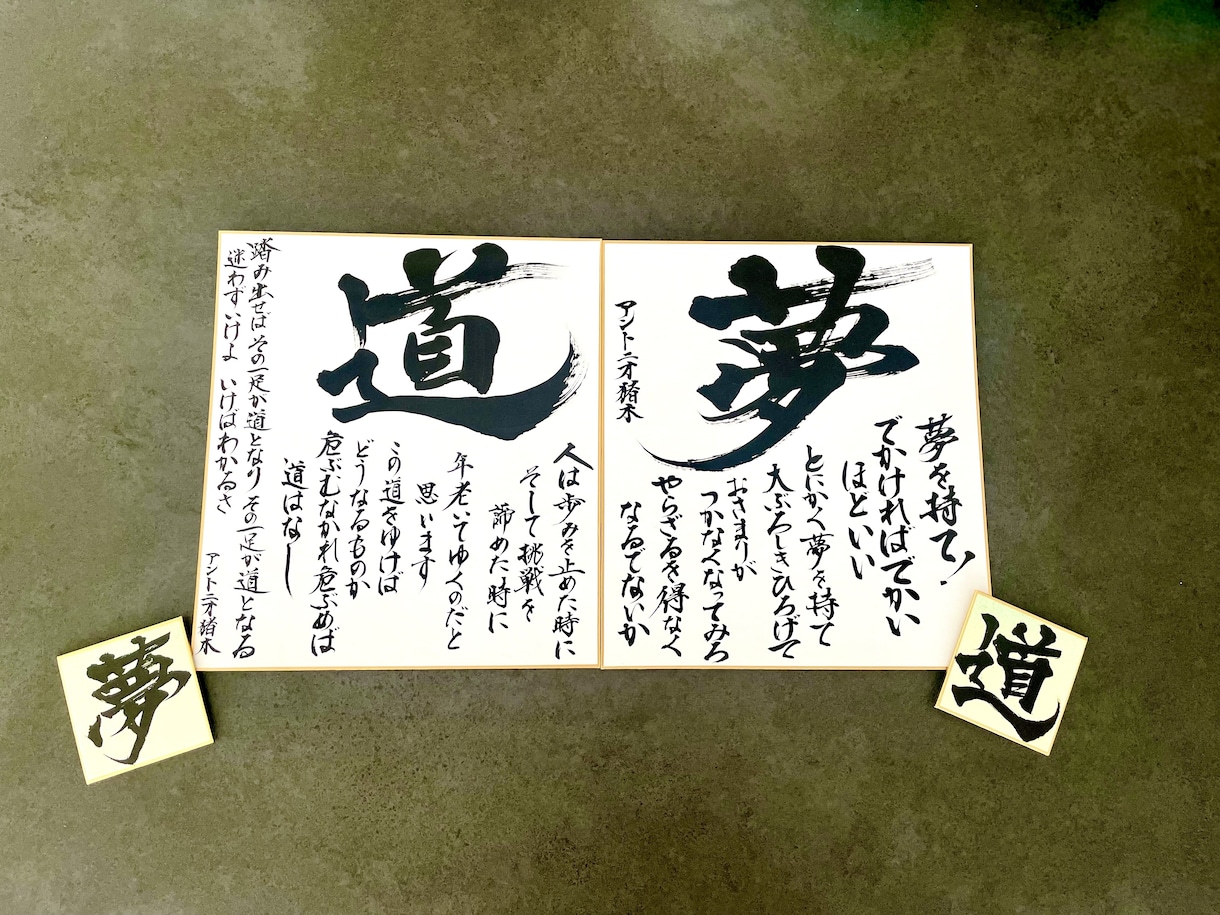 夢
夢を持て!
でかければでかい
ほどいい
とにかく夢を持て
大ぶろしきひろげて
おさまりが
つかなくなってみろ
やらざるを得なく
なるでないか
アントニオ猪木
道
人は歩みを止めた時に
そして挑戦を
諦めた時に
年老いてゆくのだと
思います
この道をゆけば
どうなるものか
危ぶむなかれ危ぶめば
道はなし
踏み出せば その一足が道となり その一足が道となる
迷わずいけよ いけばわかるさ
アントニオ猪木
道
夢